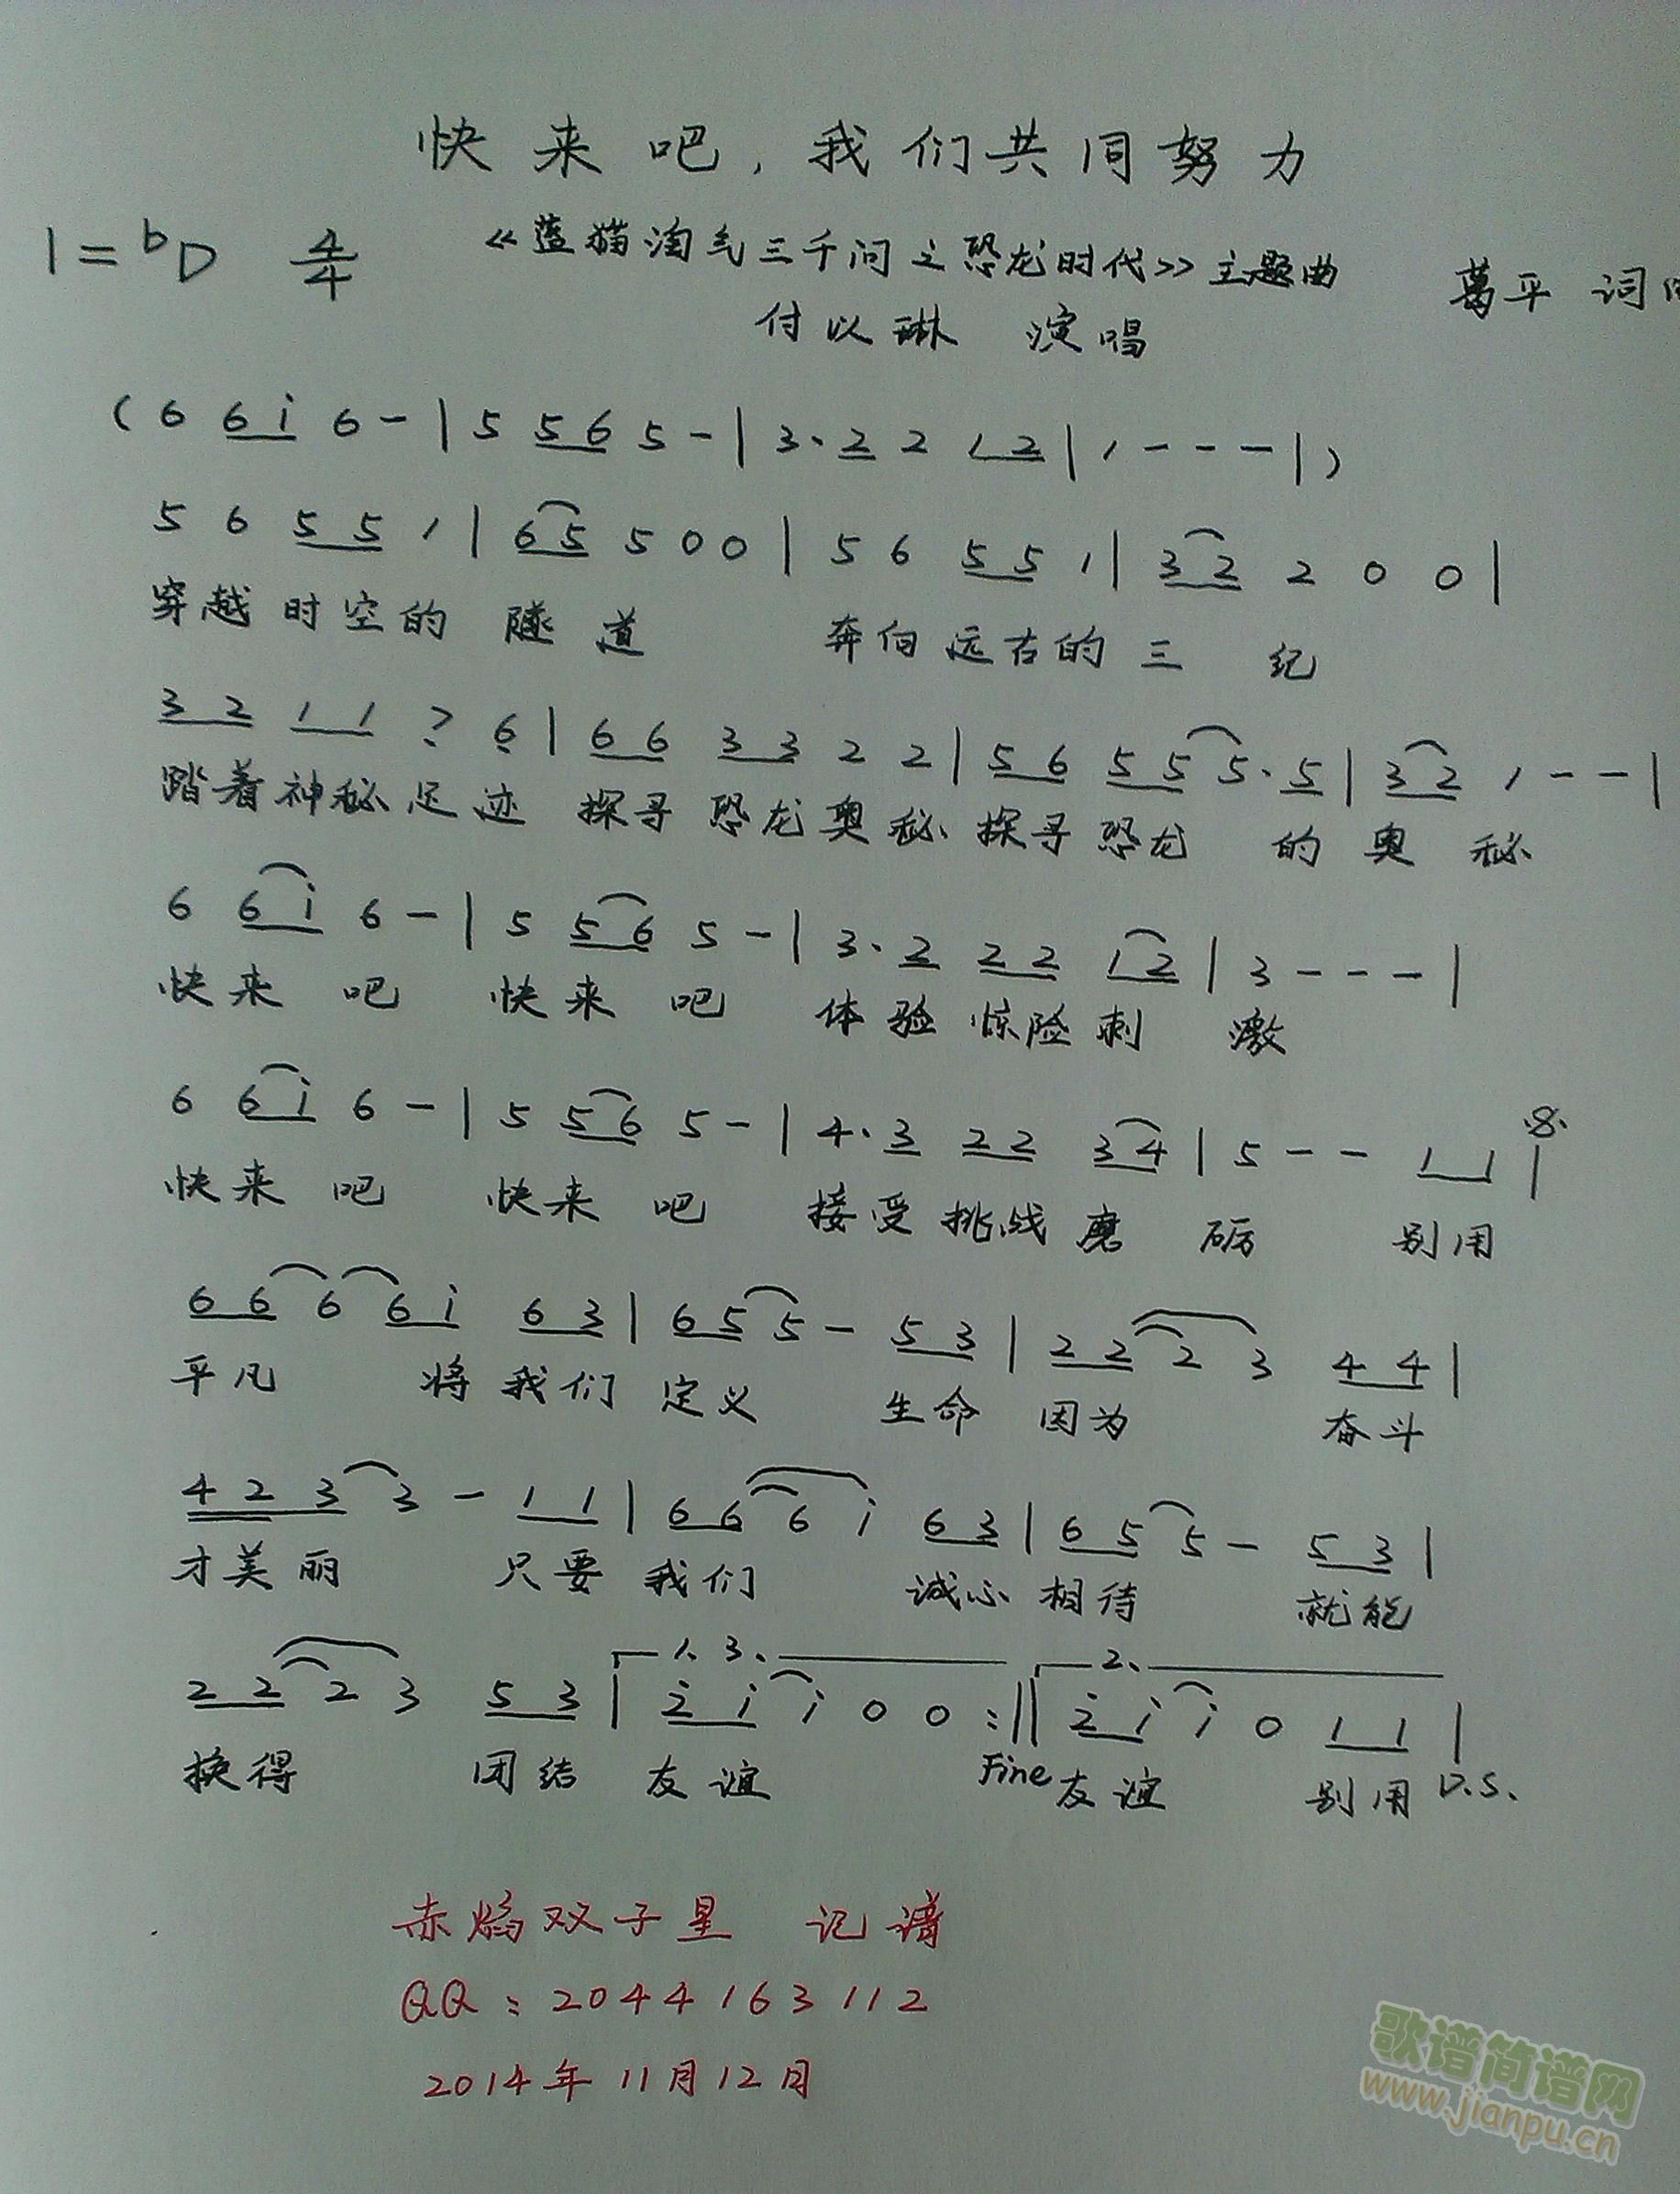 快来吧，我们共同努力
1=ᵇD 4/4 《蓝猫淘气三千问之恐龙时代》主题曲 葛平 词
付以琳 演唱
( 6 6 i 6 - | 5 5 6 5 - | 3 · 2 2 1 2 | 1 - - - | )
5 6 5 5 1 | 6 5 5 0 0 | 5 6 5 5 1 | 3 2 2 0 0 |
穿越时空的 隧道 奔向远古的三 纪
3 2 1 1 7̣ 6̣ | 6 6 3 3 2 2 | 5 6 5 5 5 · 5 | 3 2 1 - - |
踏着神秘足迹 探寻恐龙奥秘 探寻恐龙 的奥 秘
6 6 i 6 - | 5 5 6 5 - | 3 · 2 2 2 1 2 | 3 - - - |
快来 吧 快来 吧 体验惊险刺 激
6 6 i 6 - | 5 5 6 5 - | 4 · 3 2 2 3 4 | 5 - - 1 1 |
快来 吧 快来 吧 接受挑战磨 砺 别用
6 6 6 6 i 6 3 | 6 5 5 - 5 3 | 2 2 2 3 4 4 |
平凡 将我们 定义 生命 因为 奋斗
4 2 3 3 - 1 1 | 6 6 6 i 6 3 | 6 5 5 - 5 3 |
才美丽 只要 我们 诚心 相待 就能
1、3、 2、
2 2 2 3 5 3 | 2̇ i i 0 0 :|| 2̇ i i 0 1 1 |
换得 团结 友谊 Fine 友谊 别用 D.S.
赤焰双子星 记谱
QQ：2044163112
2014年11月12日
歌谱简谱网
www.jianpu.cn